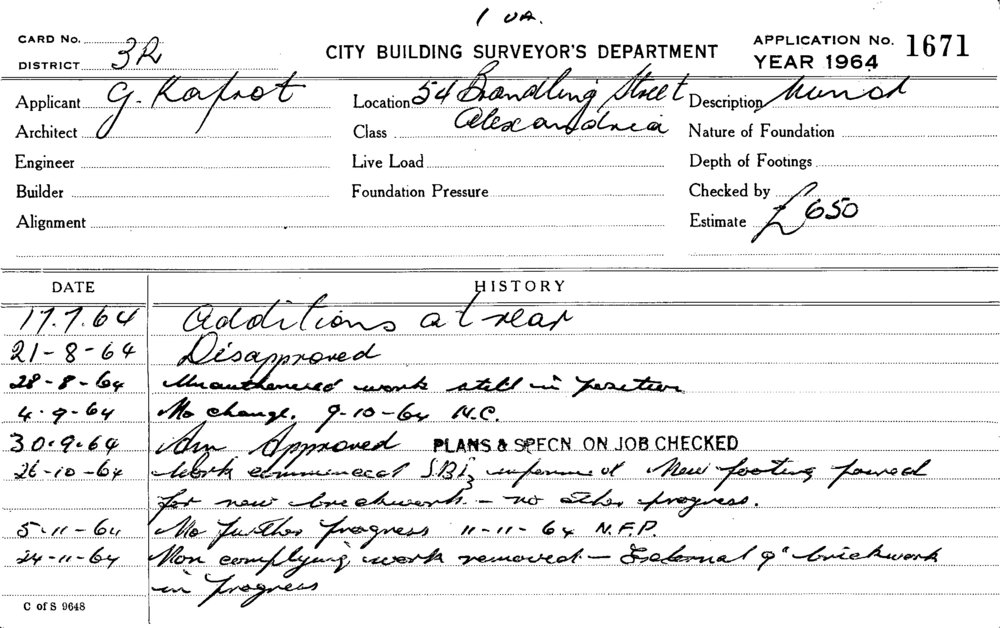 1 UA.
CARD No.
DISTRICT 3R
CITY BUILDING SURVEYOR'S DEPARTMENT
APPLICATION No. 1671
YEAR 1964
Applicant G. Kafrot
Location 54 Brandling Street
Alexandria
Description
Architect
Class
Nature of Foundation
Engineer
Live Load
Depth of Footings
Builder
Foundation Pressure
Checked by
Alignment
Estimate £650
DATE HISTORY
17.7.64 Additions at rear
21-8-64 Disapproved
28-8-64 Unauthorised work still in position
4.9-64 No change. 9-10-64 N.C.
30.9.64 Am Approved PLANS & SPECN. ON JOB CHECKED
26-10-64 Work commenced New footing poured
for new brickwork - no other progress.
5-11-64 No further progress 11-11-64 N.F.P.
24-11-64 Non complying work removed - External 9" brickwork
in progress
C of S 9648